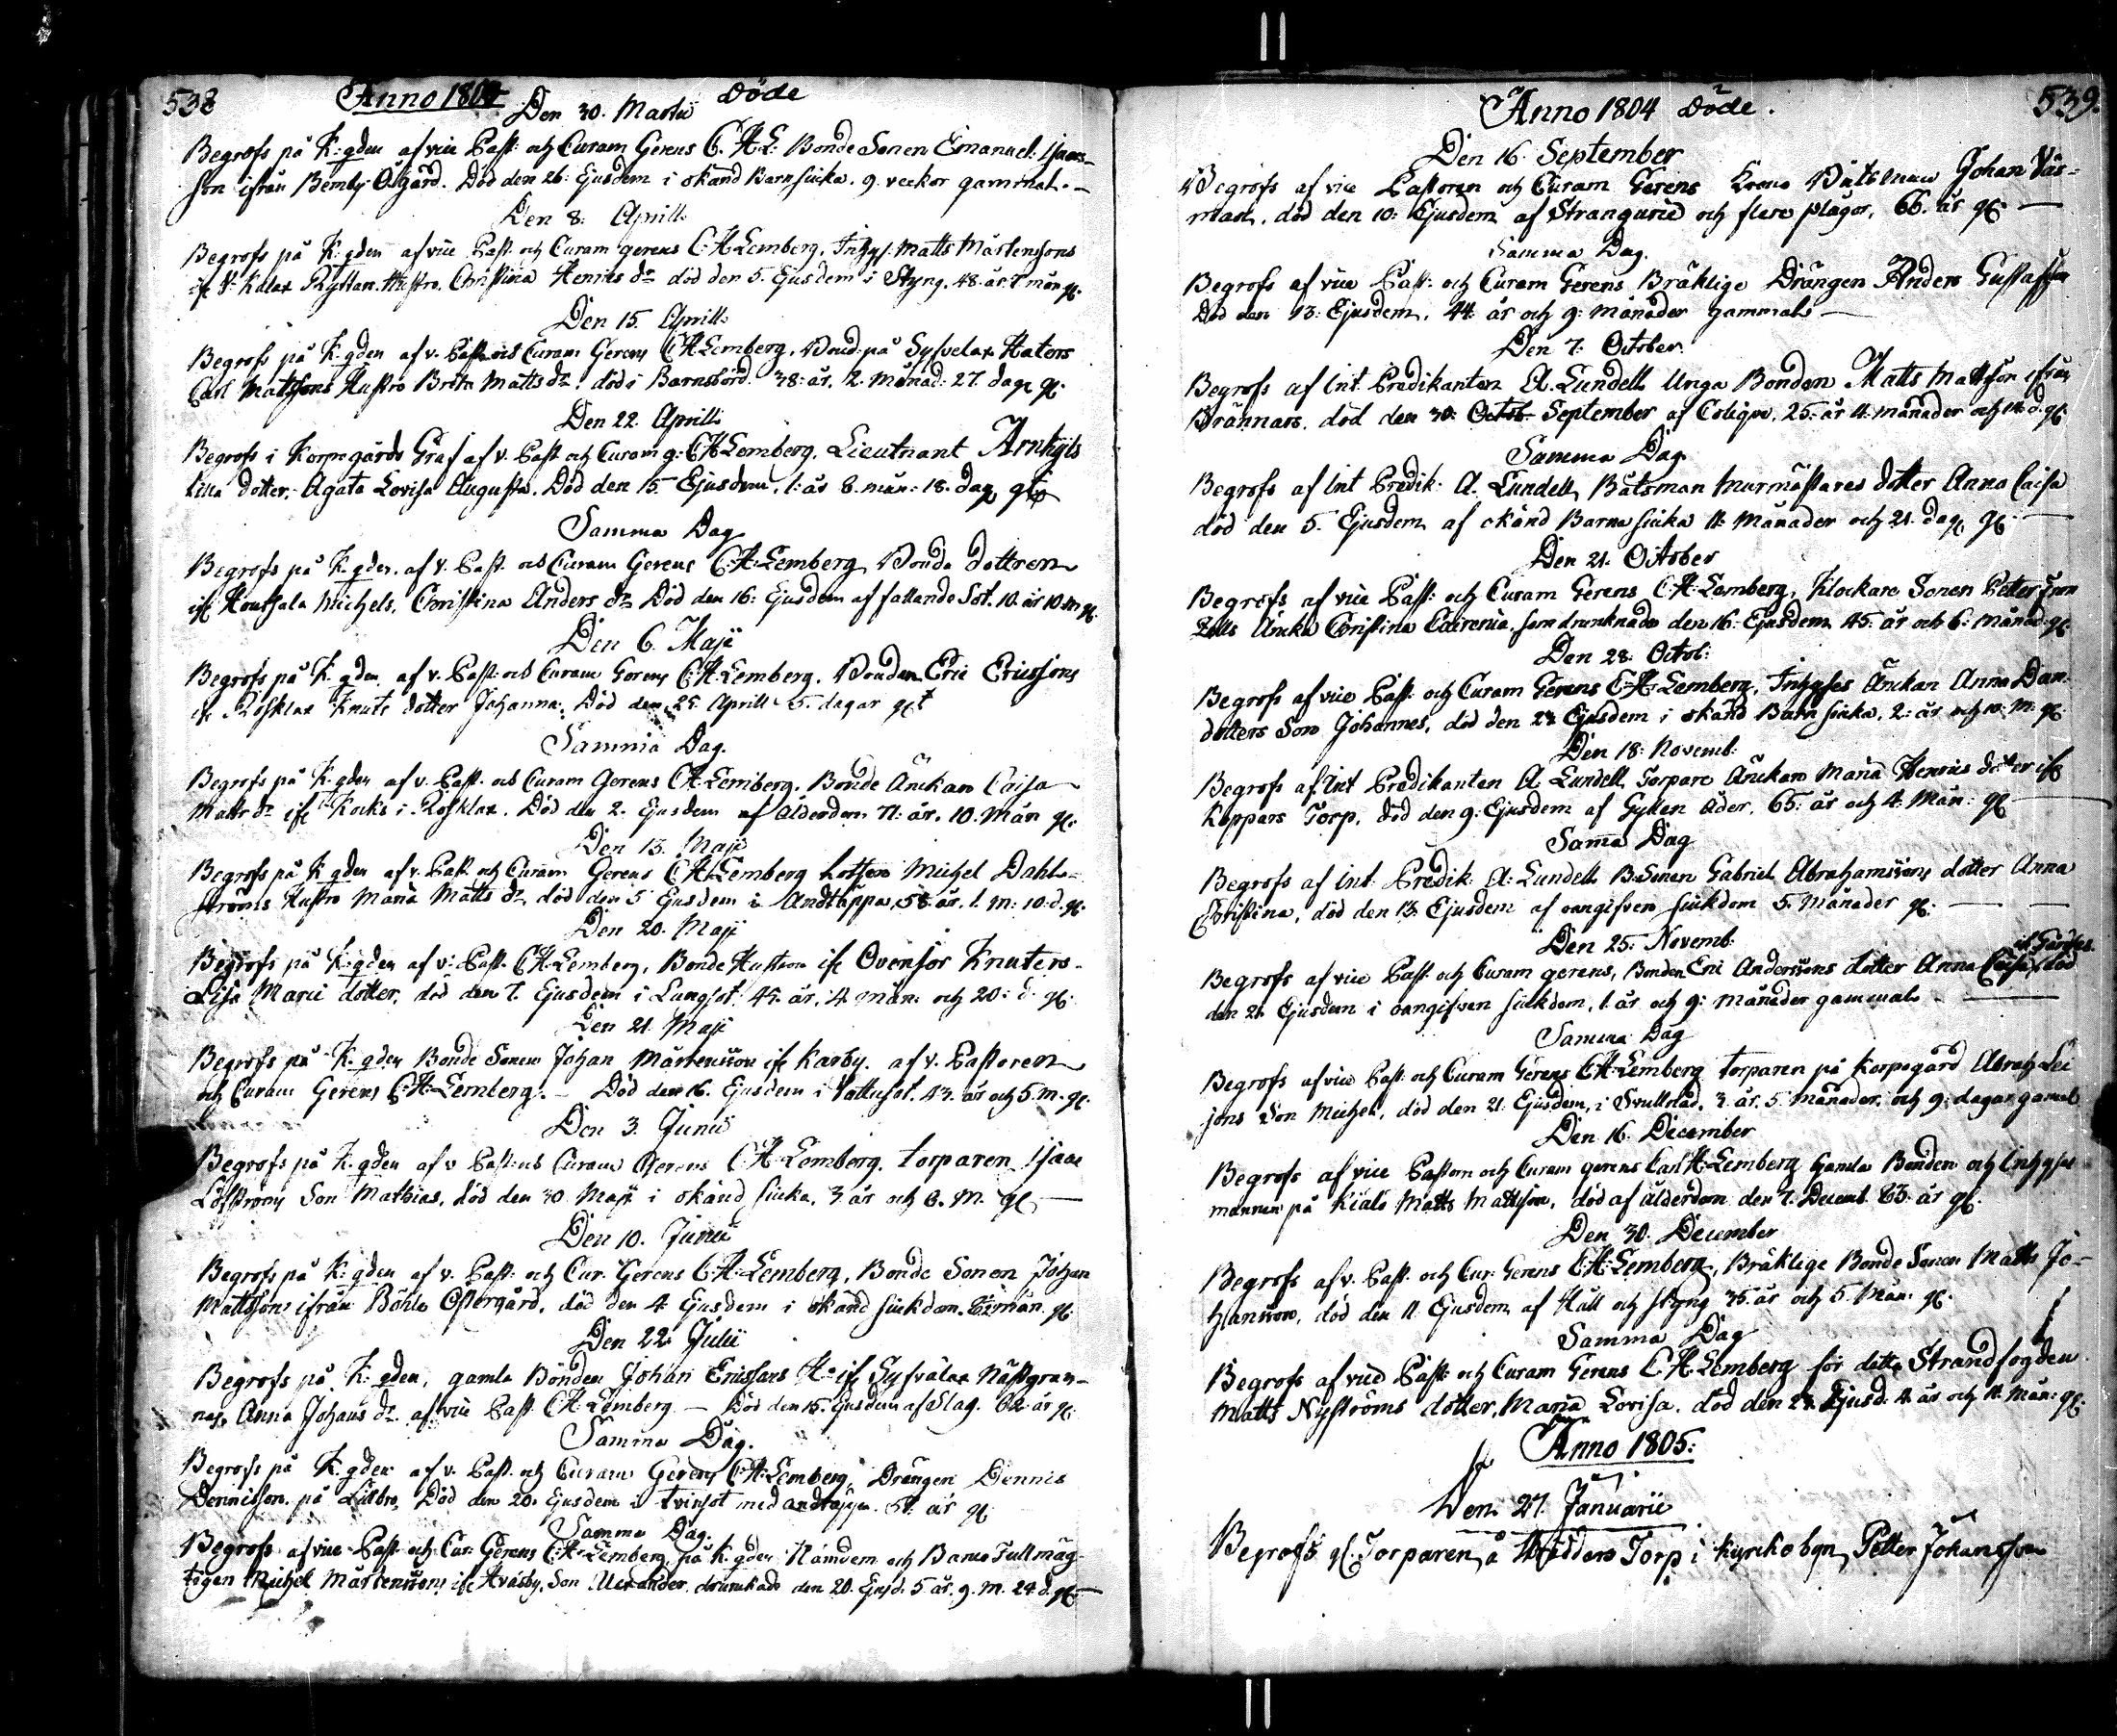 538 Anno 1804 Döde
Den 30. Martii
Begrofs på K: gden af vice Past: och Curam Gerens C. H. L: Bonde Sonen Emanuel Isacs-
son ifrån Bemby Ö.gård. Död den 26: Ejusdem i okänd Barnsiuka. 9. veckor gammal.-
Den 8: Aprill:
Begrofs på K: gden af vice Past: och Curam gerens C: H Lemberg, Inhys: Matts Mårtenssons
Hustro, Christina Henrics dr död den 5. Ejusdem i Styng. 48. år. 7 mån gl.
Den 15. Aprill:
Begrofs på K: gden af v. Past: och Curam Gerens C H Lemberg, Bond: på Sysvelax Stators
Carl Mattssons Hustro Brita Matts dr. död i Barnsbörd. 38: år. 2. månad: 27. dag. gl.
Den 22. Aprill:
Begrofs i Korpogårds Graf af v. Past och Curam g: C H Lemberg, Lieutnant Arnhyls
lilla dotter, Agata Lovisa Augusta. Död den 15. Ejusdem. 1: år 8. mån: 18. dag gl
Samma Dag
Begrofs på K: gden. af v. Past. och Curam Gerens C. H Lemberg, Bonde dottren
ifr Houtsala Michels, Christina Anders dr Död den 16: Ejusdem af fallande Sot. 10. år 10. m gl.
Den 6. Maji
Begrofs på K. gden af v. Past. och Curam Gerens C H Lemberg. Bonden Eric Ericssons
ifr Rosklax Knuts dotter Johanna. Död den 25. Aprill 5. dagar gl
Samma Dag.
Begrofs på K: gden af v. Past. och Curam Gerens C H Lemberg. Bonde Änckan Caisa
Matts dr ifr Kocks i Rosklax. Död den 2. Ejusdem af ålderdom 71: år. 10. Mån gl.
Den 13. Maji
Begrofs på K gden af v. Past och Curam Gerens C H Lemberg Lotsen Michel Dahl-
ströms Hustro Maria Matts dr död den 5 Ejusdem i Andtäppa, 58 år. 1. m: 10. d. gl.
Den 20. Maji
Begrofs på K: gden af v: Past. C H Lemberg, Bonde Hustron ifr Ovensor Knuters
Lisa Maria dotter, död den 7. Ejusdem i Lungsot, 45. år, 4 mån: och 20: d. gl.
Den 21. Maji
Begrofs på K. gden Bonde Sonen Johan Mårtensson ifr Karby. af v. Pastoren
och Curam Gerens C H Lemberg. – Död den 16. Ejusdem i Vattusot. 43. år och 5. m. gl.
Den 3. Junii
Begrofs på K. gden af v Past: och Curam Gerens C. H Lemberg, torparen Isaac
Löfströms Son Mathias, död den 30. Maji i okänd siuka, 3 år och 8. M. gl. —
Den 10. Junii
Begrofs på K: gden af v. Past: och Cur. Gerens C. H: Lemberg, Bonde Sonen Johan
Mattsson ifrån Böhle Östergård, död den 4. Ejusdem i okänd siukdom. mån. gl.
Den 22. Julii
Begrofs på K: gden, gamla Bonden Johan Ericssons H. ifr Sysvälax Nästgran-
nas Anna Johans dr. af vice Past C H Lemberg – Död den 15. Ejusdem af Slag. 62. år gl.
Samma Dag.
Begrofs på K. gden af v. Past. och Curam Gerens C. H Lemberg, Drängen Dennis
Dennisson. på Lillbro, Död den 20. Ejusdem i tvinsot med andtäppa. år gl
Samma Dag.
Begrofs af vice Past. och Cur: Gerens C. H Lemberg på K. gden Nämdem och Banco Fullmäg-
tigen Michel Mårtenssons ifr Avasby. Son Alexander, drunknade den 20. Ejusd. 5 år. 9. m. 24 d. gl.—
Anno 1804 Döde. 539.
Den 16. September
Begrofs af vice Pastoren och Curam Gerens Krono Båtsman Johan Väs-
mast, död den 10: Ejusdem af Strangurie och flere plågor, 66. år gl. —
Samma Dag.
Begrofs af vice Past: och Curam Gerens Bräklige Drängen Anders Gustafsson
Död den 13: Ejusdem, 44: år och 9: månader gammal.—
Den 7. October.
Begrofs af Int. Predikanten A. Lundell Unga Bonden Matts Mattsson ifrån
Brännars, död den 30. Octob. September af Colique, 25. år 11. månader och 14. d. gl.
Samma Dag.
Begrofs af Int Predik: A. Lundell, Båtsman Murmästares dotter Anna Caisa
död den 5. Ejusdem af okänd Barna siuka 11. Månader och 21. dag. gl. —
Den 21. October
Begrofs af vice Past: och Curam Gerens C: H Lemberg, Klockare Sonen Petter
Änka Christina Catrina, som drunknade den 16: Ejusdem 45: år och 6: månad: gl.
Den 28: Octob:
Begrofs af vice Past: och Curam Gerens C H Lemberg, Inhyses Änckan Anna Dan-
dotters Son Johannes, död den 23 Ejusdem i okänd Barn siuka, 2: år och 10: m: gl
Den 18: Novemb:
Begrofs af Int Predikanten A Lundell, Torpare Änckan Maria Henrics dotter ifr
Koppars Torp, död den 9: Ejusdem af Gyllen åder, 65: år och 4. Mån: gl
Samma Dag
Begrofs af Int. Predik: A: Lundell B. Sonen Gabriel Abrahamssons dotter Anna
Christina, död den 13. Ejusdem af oangifven siukdom 5. Månader gl. —
Den 25: Novemb.
Begrofs af vice Past: och Curam gerens, Bonden Eric Anderssons dotter Anna Caisa, död
ifr Gårdas
den 21. Ejusdem i oangifven siukdom, 1. år och 9: månader gammal. —
Samma Dag
Begrofs af vice Past: och Curam Gerens C H Lemberg torparen på Korpogård Abrah: Lei
jons Son Michel, död den 21. Ejusdem, i Svullnad, 3. år. 5. månader. och 9: dagar gamal
Den 16. December
Begrofs af vice Pastorn och Curam gerens Carl H Lemberg Gamla Bonden och Inhyses
mannen på Kiälö Matts Mattsson, död af ålderdom den 7. Decemb. 83. år gl.
Den 30. December
Begrofs af v. Past. och Cur: Gerens C. H: Lemberg, Bräklige Bonde Sonen Matts Jo-
hansson, död den 11. Ejusdem af Håll och styng 35. år och 5. Mån: gl.
Samma Dag
Begrofs af vice Past: och Curam Gerens C. H. Lemberg för detta Strandfogden
Matts Nyströms dotter, Maria Lovisa, död den 27. Ejusd: 4. år och 11. Mån: gl:
Anno 1805:
Den 27. Januarii
Begrofs gl. Torparen å Widders Torp i kyrkobyn Petter Johansson